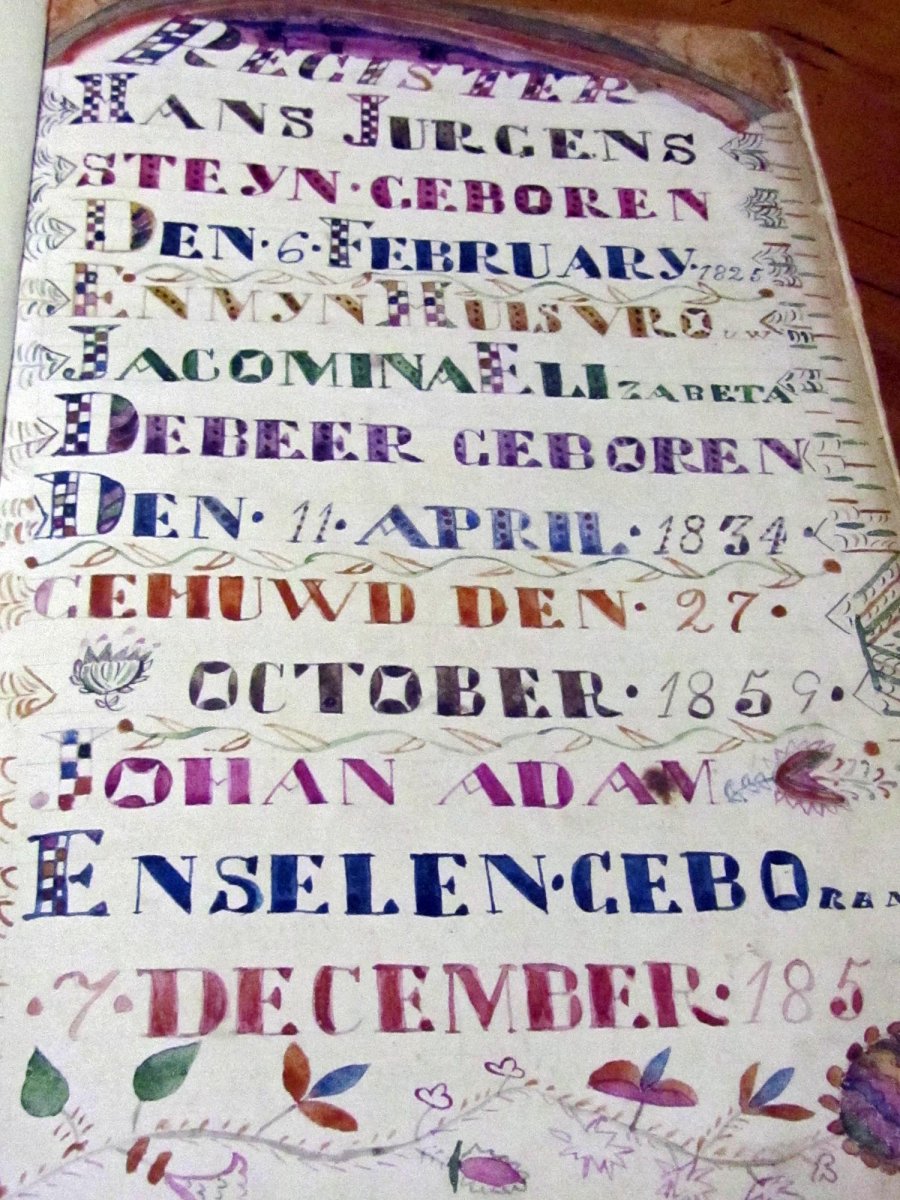 REGISTER
HANS JURGENS
STEYN · GEBOREN
DEN · 6 · FEBRUARY · 1825
EN MYN HUISVROUW
JACOMINA ELIZABETA
DEBEER GEBOREN
DEN · 11 · APRIL · 1834 ·
GEHUWD DEN · 27 ·
OCTOBER · 1859 ·
JOHAN ADAM
ENSELEN · GEBOREN
· 7 · DECEMBER · 185